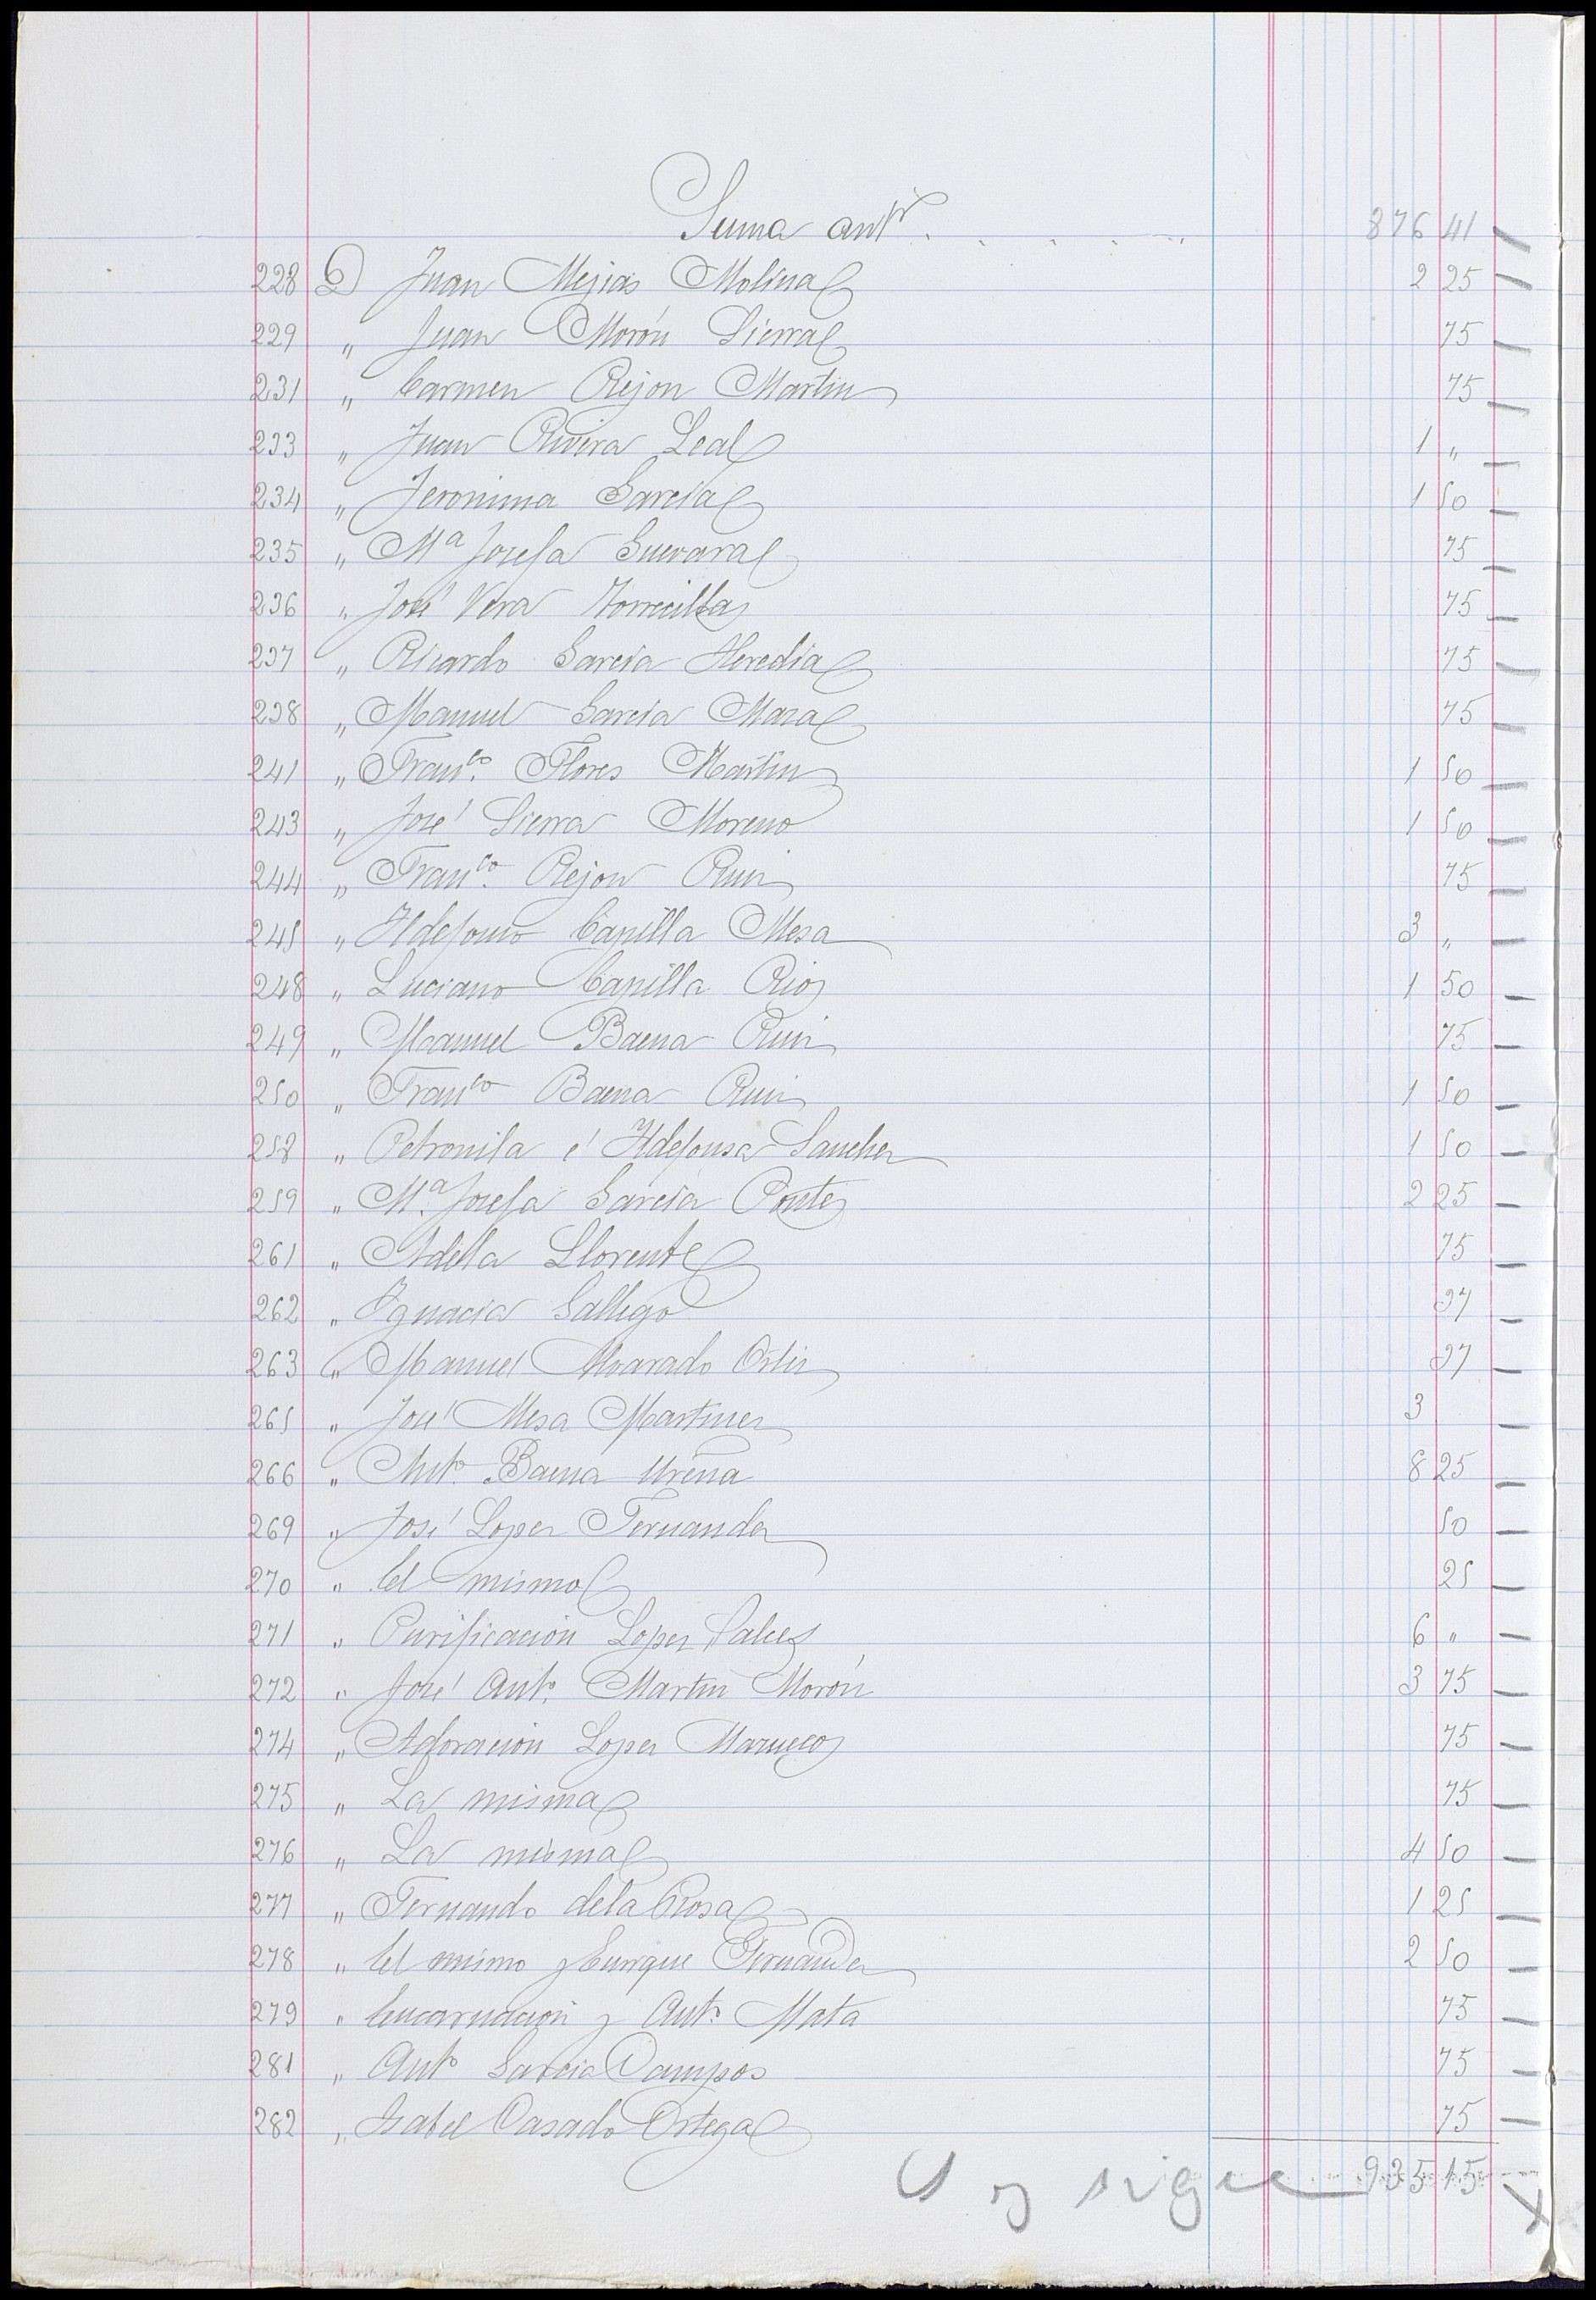 Suma antr. . . . . . 876 41
228 D Juan Mejias Molina 2 25
229 " Juan Morón Sierra 75
231 " Carmen Rejon Martin 75
233 " Juan Rivera Leal 1 "
234 " Jeronima Garcia 1 50
235 " Mª Josefa Guevara 75
236 " José Vera Torrecillas 75
237 " Ricardo Garcia Heredia 75
238 " Manuel Garcia Maza 75
241 " Franco. Flores Martin 1 50
243 " José Sierra Moreno 1 50
244 " Franco. Rejon Ruiz 75
245 " Yldefonso Capilla Mesa 3 "
248 " Luciano Capilla Rios 1 50
249 " Manuel Baena Ruiz 75
250 " Franco Baena Ruiz 1 50
258 " Petronila é Yldefonsa Sanchez 1 50
259 " Mª. Josefa Garcia Ponte 2 25
261 " Adela Llorente 75
262 " Ygnacia Gallego 37
263 " Manuel Alvarado Ortiz 37
265 " José Mesa Martinez 3
266 " Anto. Baena Ureña 8 25
269 " José Lopez Fernandez 50
270 " El mismo 25
271 " Purificación Lopez 6 "
272 " José Anto. Martin Morón 3 75
274 " Adoración Lopez Mazuecos 75
275 " La misma 75
276 " La misma 4 50
277 " Fernando de la Rosa 1 25
278 " El mismo y Enrique Fernandez 2 50
279 " Encarnación y Anto. Mata 75
281 " Anto Garcia Campos 75
282 " Isabel Casado Ortega 75
y sigue 935 15